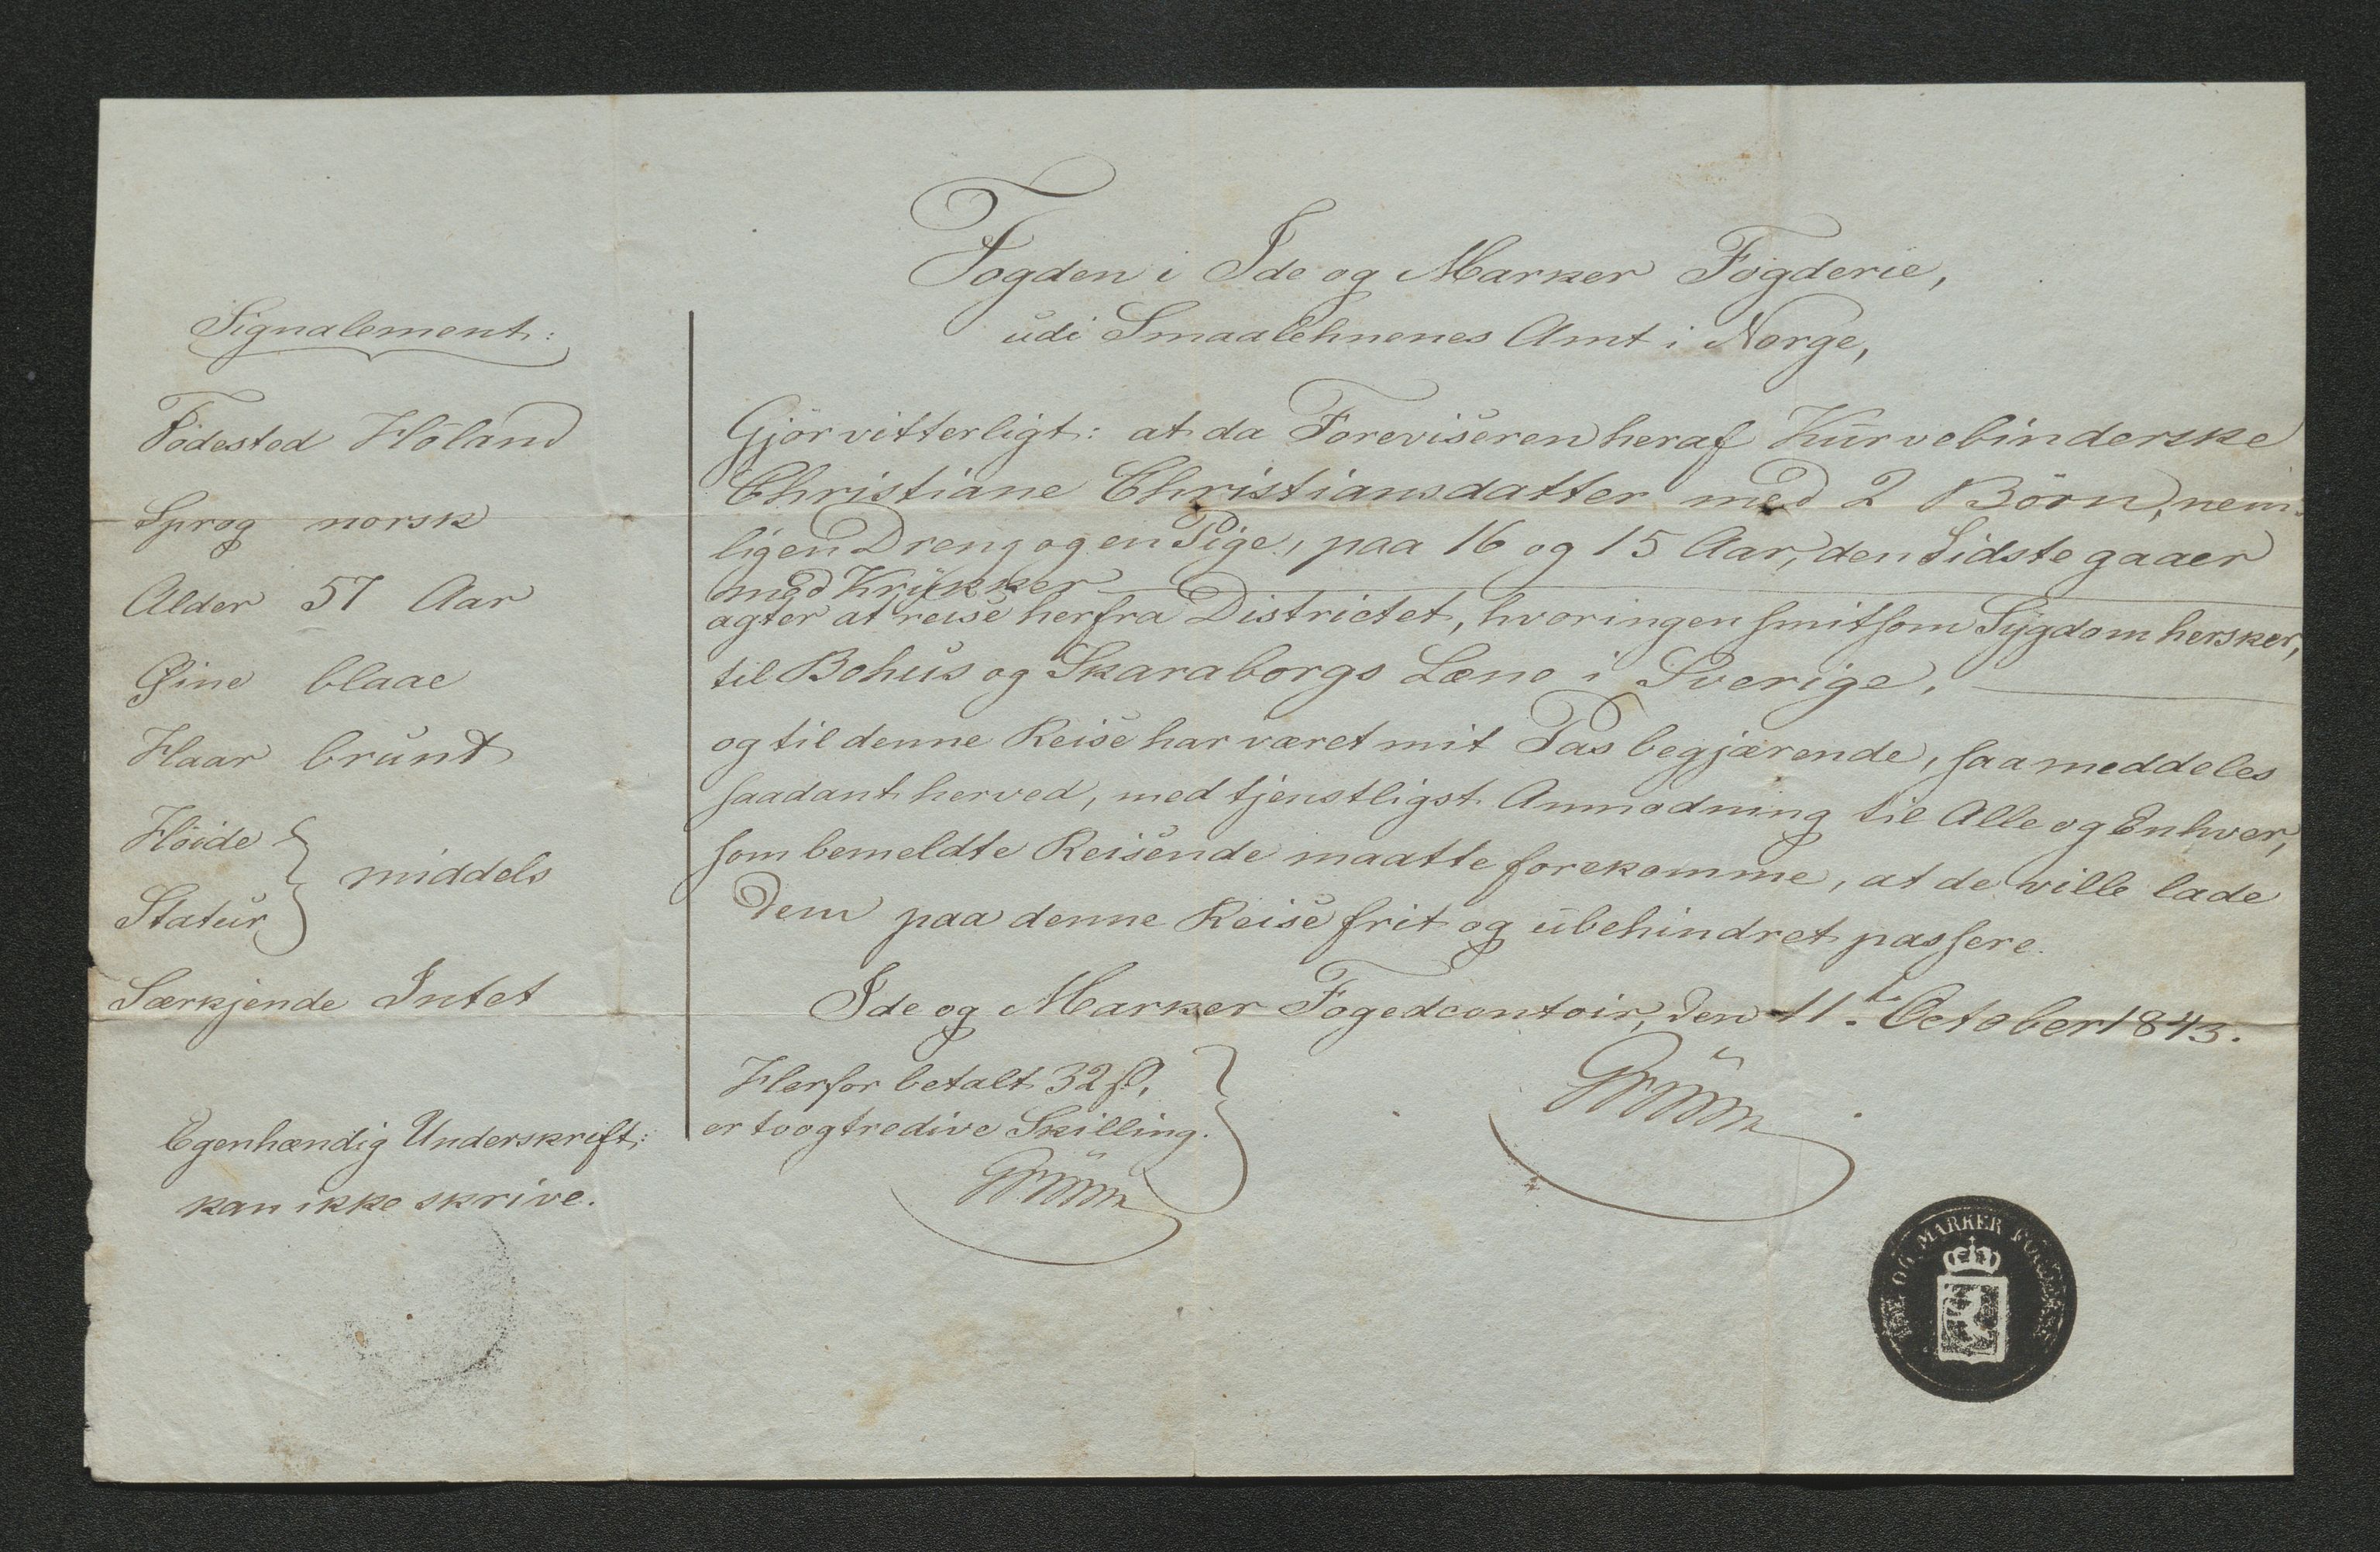 Fogden i Ide og Marker Fogderie,
udi Smaalehnenes Amt i Norge,
Signalement:
Födested Höland
Sprog norsk
Alder 57 Aar
Øine blaae
Haar brunt
Höide
Statur } middels
Særkjende Intet
Egenhændig Underskrift:
kan ikke skrive.
Gjör vitterligt: at da Foreviseren heraf Kurvebinderske
Christiane Christiansdatter med 2 Börn, nem-
ligen Dreng og en Pige, paa 16 og 15 Aar, den Sidste gaaer
med Krykker
agter at reise herfra Districtet, hvor ingen smitsom Sygdom hersker,
til Bohus og Skaraborgs Læne i Sverige,
og til denne Reise har været mit Pas begjærende, saa meddeles
saadant herved, med tjenstligst Anmodning til Alle og Enhver,
som bemeldte Reisende maatte forekomme, at de ville lade
Dem paa denne Reise frit og ubehindret passere.
Ide og Marker Fogedcontoir, den 11te October 1843.
Herfor betalt 32 ß,
er toogtredive Skilling.
IDE OG MARKER FOGDERIE